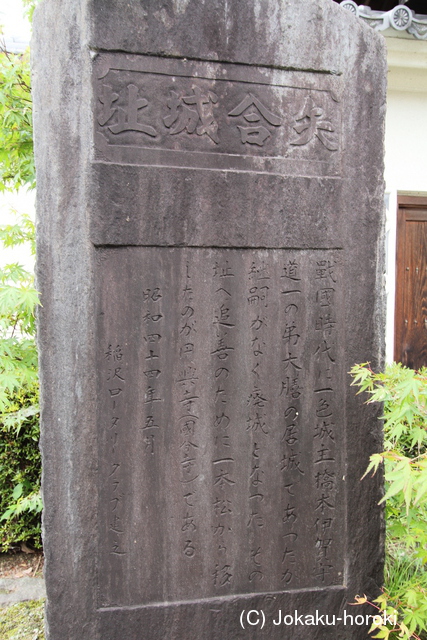 矢合城址
戰國時代に一色城主橋本伊賀守
道一の弟大膳の居城であつたが
継嗣がなく廃城となつた その
址へ追善のために一本松から移
したのが円興寺(国分寺)である
昭和四十四年五月
稲沢ロータリークラブ建之
(C) Jokaku-horoki